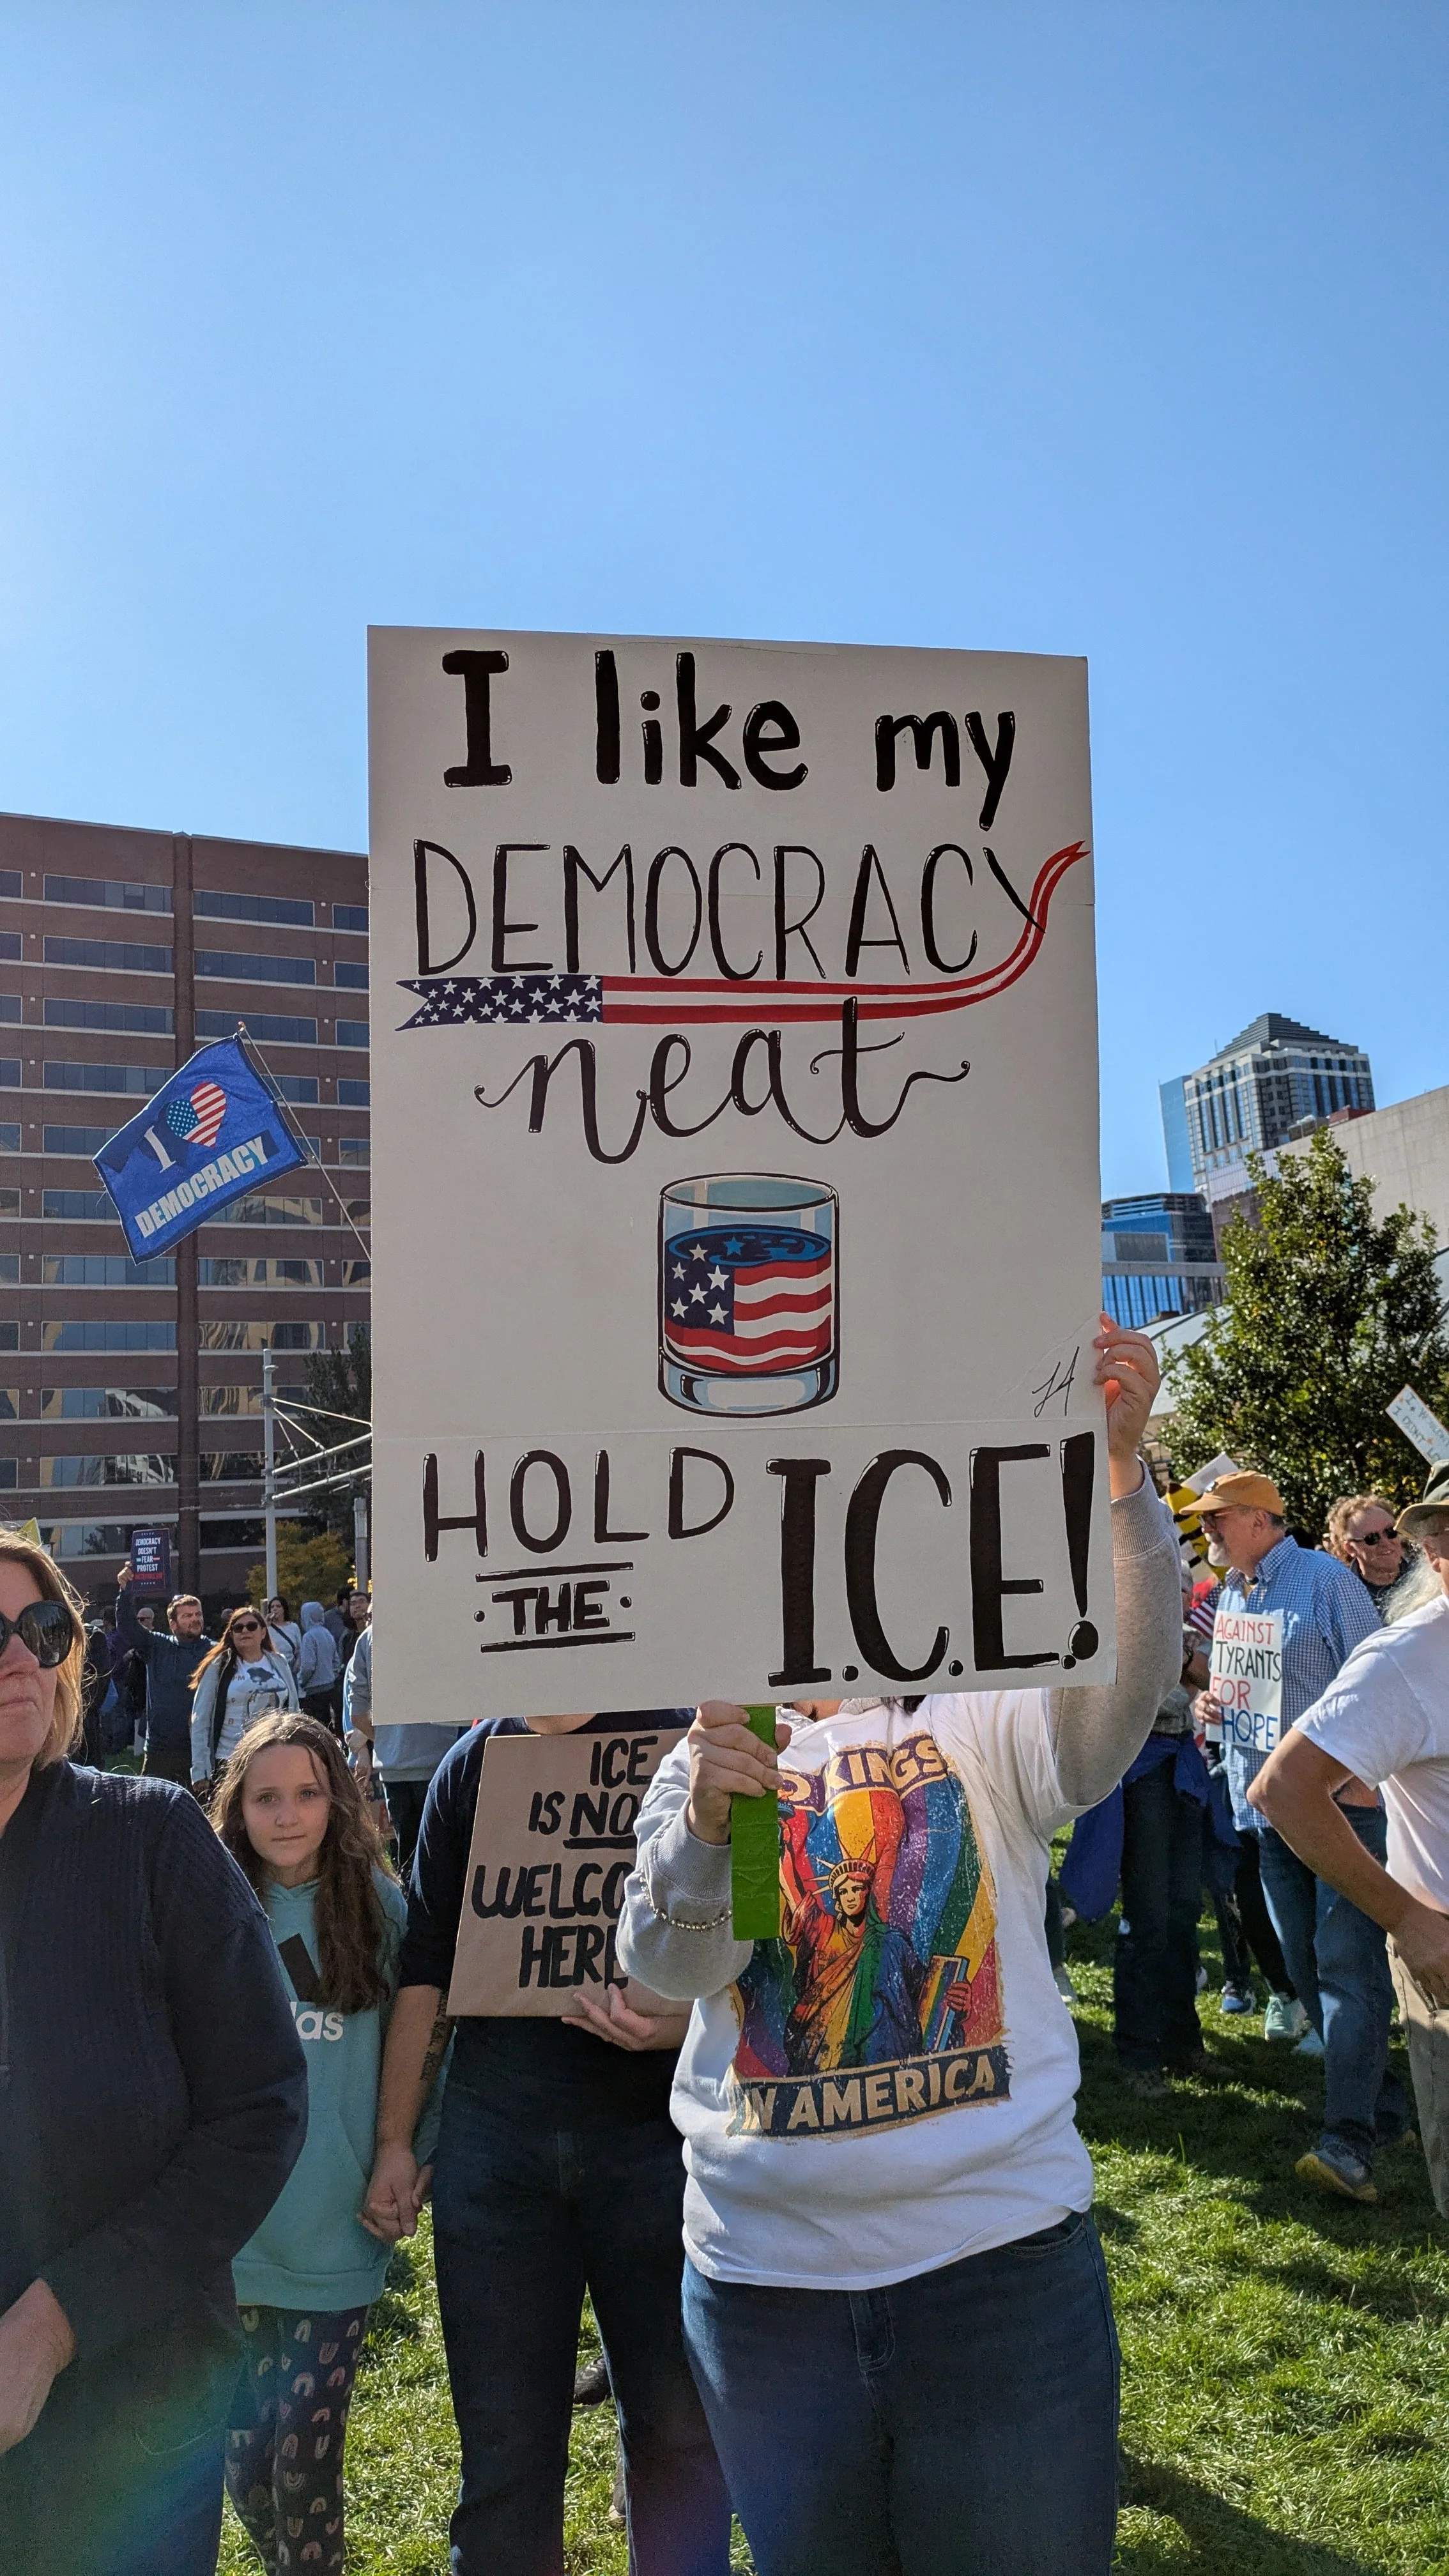 I like my
DEMOCRACY
neat
HOLD
THE
I.C.E!
I
DEMOCRACY
DEMOCRACY
DOESN'T
FEAR
PROTEST
ICE
IS NO
WELCO
HERE
KINGS
IN AMERICA
das
AGAINST
TYRANTS
FOR
HOPE